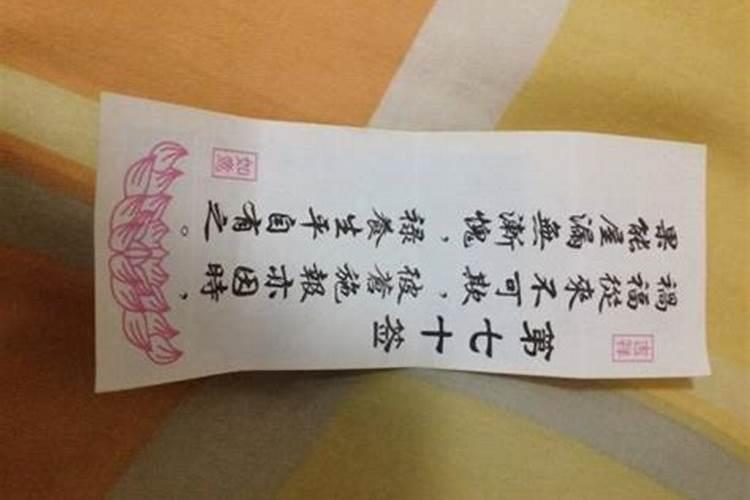 吉祥
第七十签
禍福從來不可欺,彼蒼施報亦因時,
果能屋漏無漸愧,祿養生平自有之。
如意